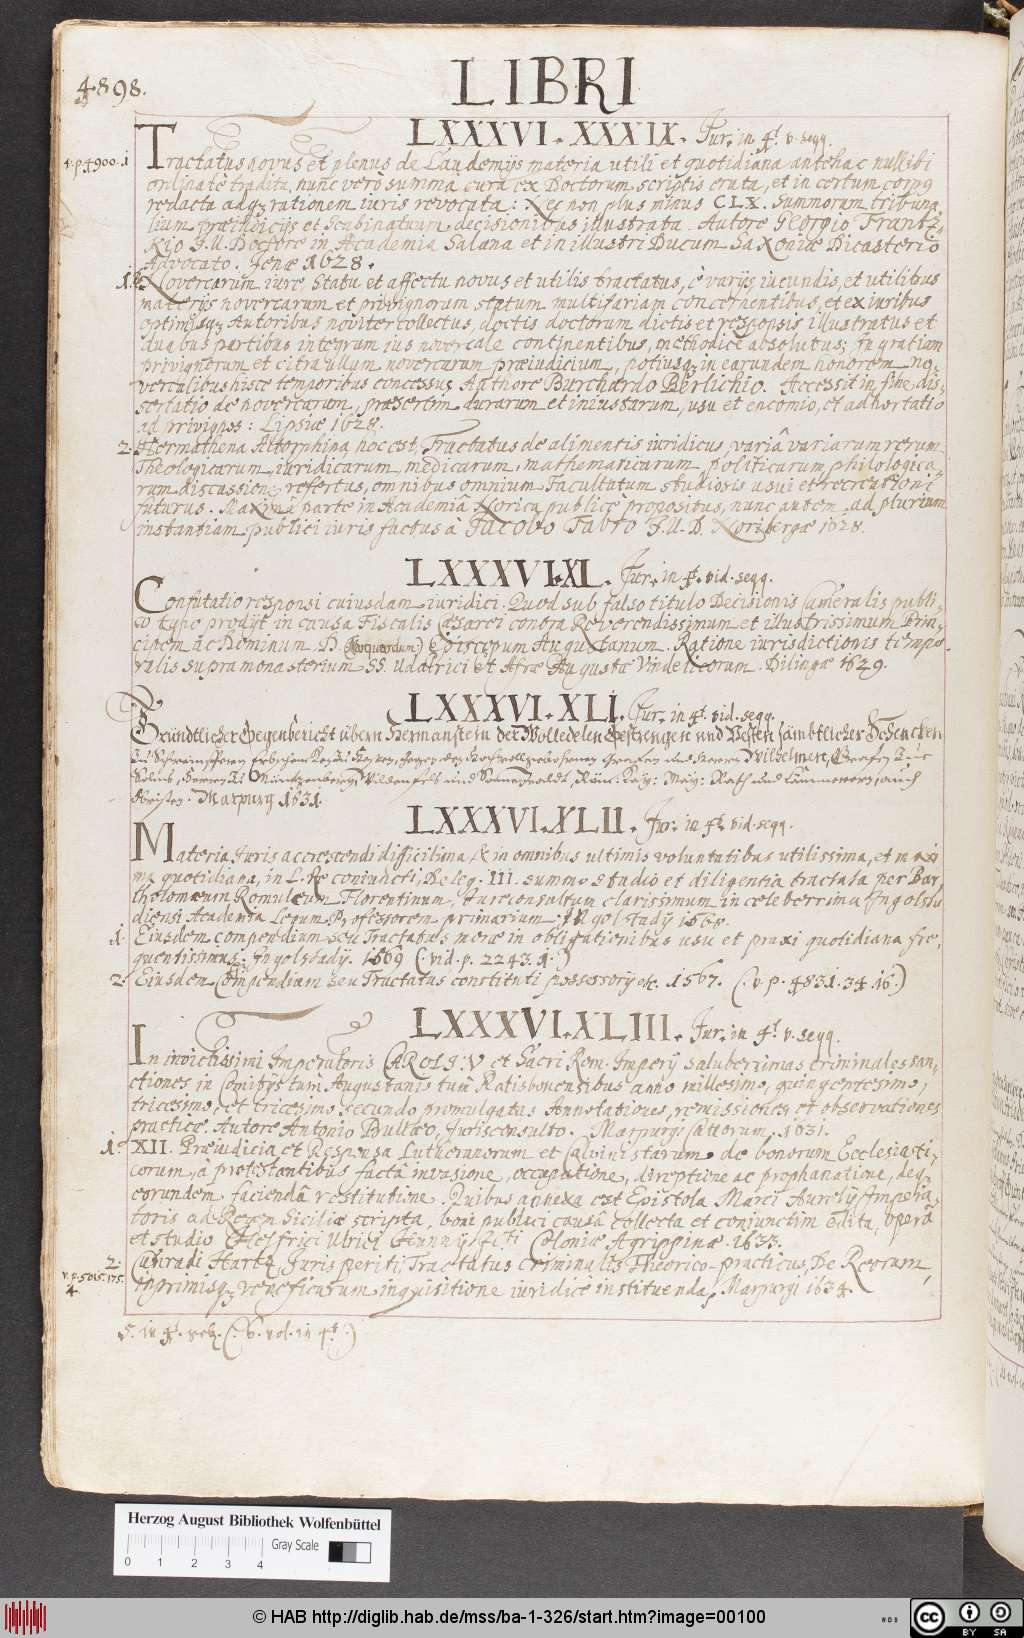 LIBRI
4898.
LXXXVI. XXXIX. Jur. in 4t. v. segg.
v. p. 4900. 1
Tractatus novus et plenus de Laudemijs materia utili et quotidiana antehac nullibi
ordinate tradita, nunc vero summa cura ex Doctorum scriptis eruta, et in certum corpq
redacta adqz rationem iuris revocata: Nec non plus minus CLX. summorum tribuna,
lium præiudicijs et Scabinatuum decisionibus illustrata. Autore Georgio Frantz,
kio J. U. Doctore in Academia Salana et in illustri Ducum Saxoniæ Dicasterio
Advocato. Jenæ 1628.
1. Novercarum iure, statu et affectu novus et utilis tractatus, è varijs iucundis, et utilibus
materijs novercarum et privignorum statum multifariam concernentibus, et ex iuribus
optimisqz Autoribus noviter collectus, doctis doctorum dictis et responsis illustratus et
duabus partibus integrum ius novercale continentibus, methodice absolutus; In gratiam
privignorum et citra ullum novercarum præiudicium, potiusqz in earundem honorem no,
vercalibus hisce temporibus concessus Authore Burchardo Berlichio. Accessit in fine dis,
sertatio de novercarum, præsertim durarum et iniustarum, usu et encomio, et adhortatio
ad privignos: Lipsiæ 1628.
2. Hermathena Altorphina, hoc est, Tractatus de alimentis iuridicus, variâ variarum rerum
Theologicarum, iuridicarum, medicarum, mathematicarum, politicarum, philologica,
rum discussione refertus, omnibus omnium Facultatum studiosis usui et recreationi
futurus. Maximâ parte in Academiâ Norica publicè propositus, nunc autem ad plurium
instantiam publici iuris factus à Jacobo Fabro J. U. D. Noribergæ 1628.
LXXXVI. XL. Jur. in 4t. vid. segg.
Confutatio responsi cuiusdam iuridici. Quod sub falso titulo Decisionis Cameralis publi,
co typo prodijt in causa Fiscalis Cæsarei contra Reverendissimum et illustrissimum Prin,
cipem ac Dominum D. (Marquardum) Episcopum Augustanum. Ratione iurisdictionis tempo,
ralis supra monasterium SS. Udalrici et Afræ Augustæ Vindelicorum. Dilingæ 1629.
LXXXVI. XLI. Jur. in 4t. vid. segg.
Gründtlicher Gegenbericht übern Hermanstein der Wolledelen Gestrengen und Vesten sämbtlicher Schencken
zu Schweinsberg Erbschencken zu Hessen, gegen den Hochwollgebohrnen Grafen und Herren Wilhelmen, Grafen zue
Solms, Herren zu Müntzenberg, Wildenfels und Sonnewaldt, Röm. Kay: May: Rath und Cammerern, auch
Obristen. Marpurg 1631.
LXXXVI. XLII. Jur. in 4t. vid. segg.
Materia Juris accrescendi difficilima, & in omnibus ultimis voluntatibus utilissima, et maxi
ma quotidiana, in L. Re coniuncti, De leg. III. summo studio et diligentia tractata per Bar,
tholomæum Romulæum Florentinum, Jurisconsultum clarissimum in celeberrima Ingolsta
diensi Academia Legum Professorem primarium. Ingolstadij 1568.
1. Eiusdem compendium seu Tractatus moræ in obligationibus usu et praxi quotidiana fre,
quentissimus. Ingolstadij. 1569 (. vid. p. 2243. 1.)
2. Eiusdem Compendium seu Tractatus constituti possessorij etc. 1567. (. v. p. 4831. 34. 16.)
LXXXVI. XLIII. Jur. in 4t. v. segg.
In invictissimi Imperatoris CAROLI. V et Sacri Rom. Imperij saluberrimas criminales san,
ctiones in Comitijs tum Augustanis tum Ratisbonensibus anno millesimo, quingentesimo,
tricesimo, et tricesimo secundo promulgatas Annotationes, remissiones et observationes
practicæ. Autore Antonio Bullæo, Jurisconsulto. Marpurgi Cattorum. 1631.
1. XII. Præiudicia et Responsa Lutheranorum et Calvinistarum de bonorum Ecclesiasti,
corum, a protestantibus facta invasione, occupatione, direptione ac prophanatione, deqz
eorundem faciendâ restitutione. Quibus annexa est Epistola Marci Aurelij Impera,
toris ad Regem Siciliæ scripta, boni publici causâ collecta et coniunctim edita, operâ
et studio Helfrici Ulrici Hunnij, Coloniæ Agrippinæ. 1633.
2. Cunradi Hartz, Jurisperiti, Tractatus criminalis Theorico-practicus, De Reorum,
v. p. 5015. 175. 4
inprimisqz veneficarum inquisitione iuridicè instituenda, Marpurgi 1634.
5. in 4t. (. 6. vol. in 4t.)
Herzog August Bibliothek Wolfenbüttel
0 1 2 3 4
Gray Scale
© HAB http://diglib.hab.de/mss/ba-1-326/start.htm?image=00100
WDB
cc
BY SA